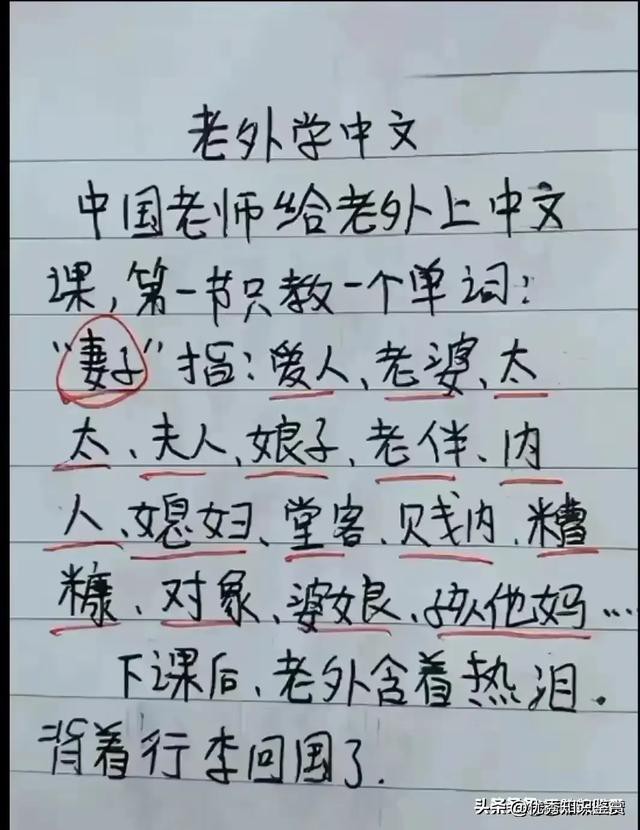 老外学中文
中国老师给老外上中文
课,第一节只教一个单词:
"妻子"指:爱人、老婆、太
太、夫人、娘子、老伴、内
人、媳妇、堂客、贱内、糟
糠、对象、婆娘、孩他妈…
下课后、老外含着热泪.
背着行李回国了.
头条 @优秀知识鉴赏